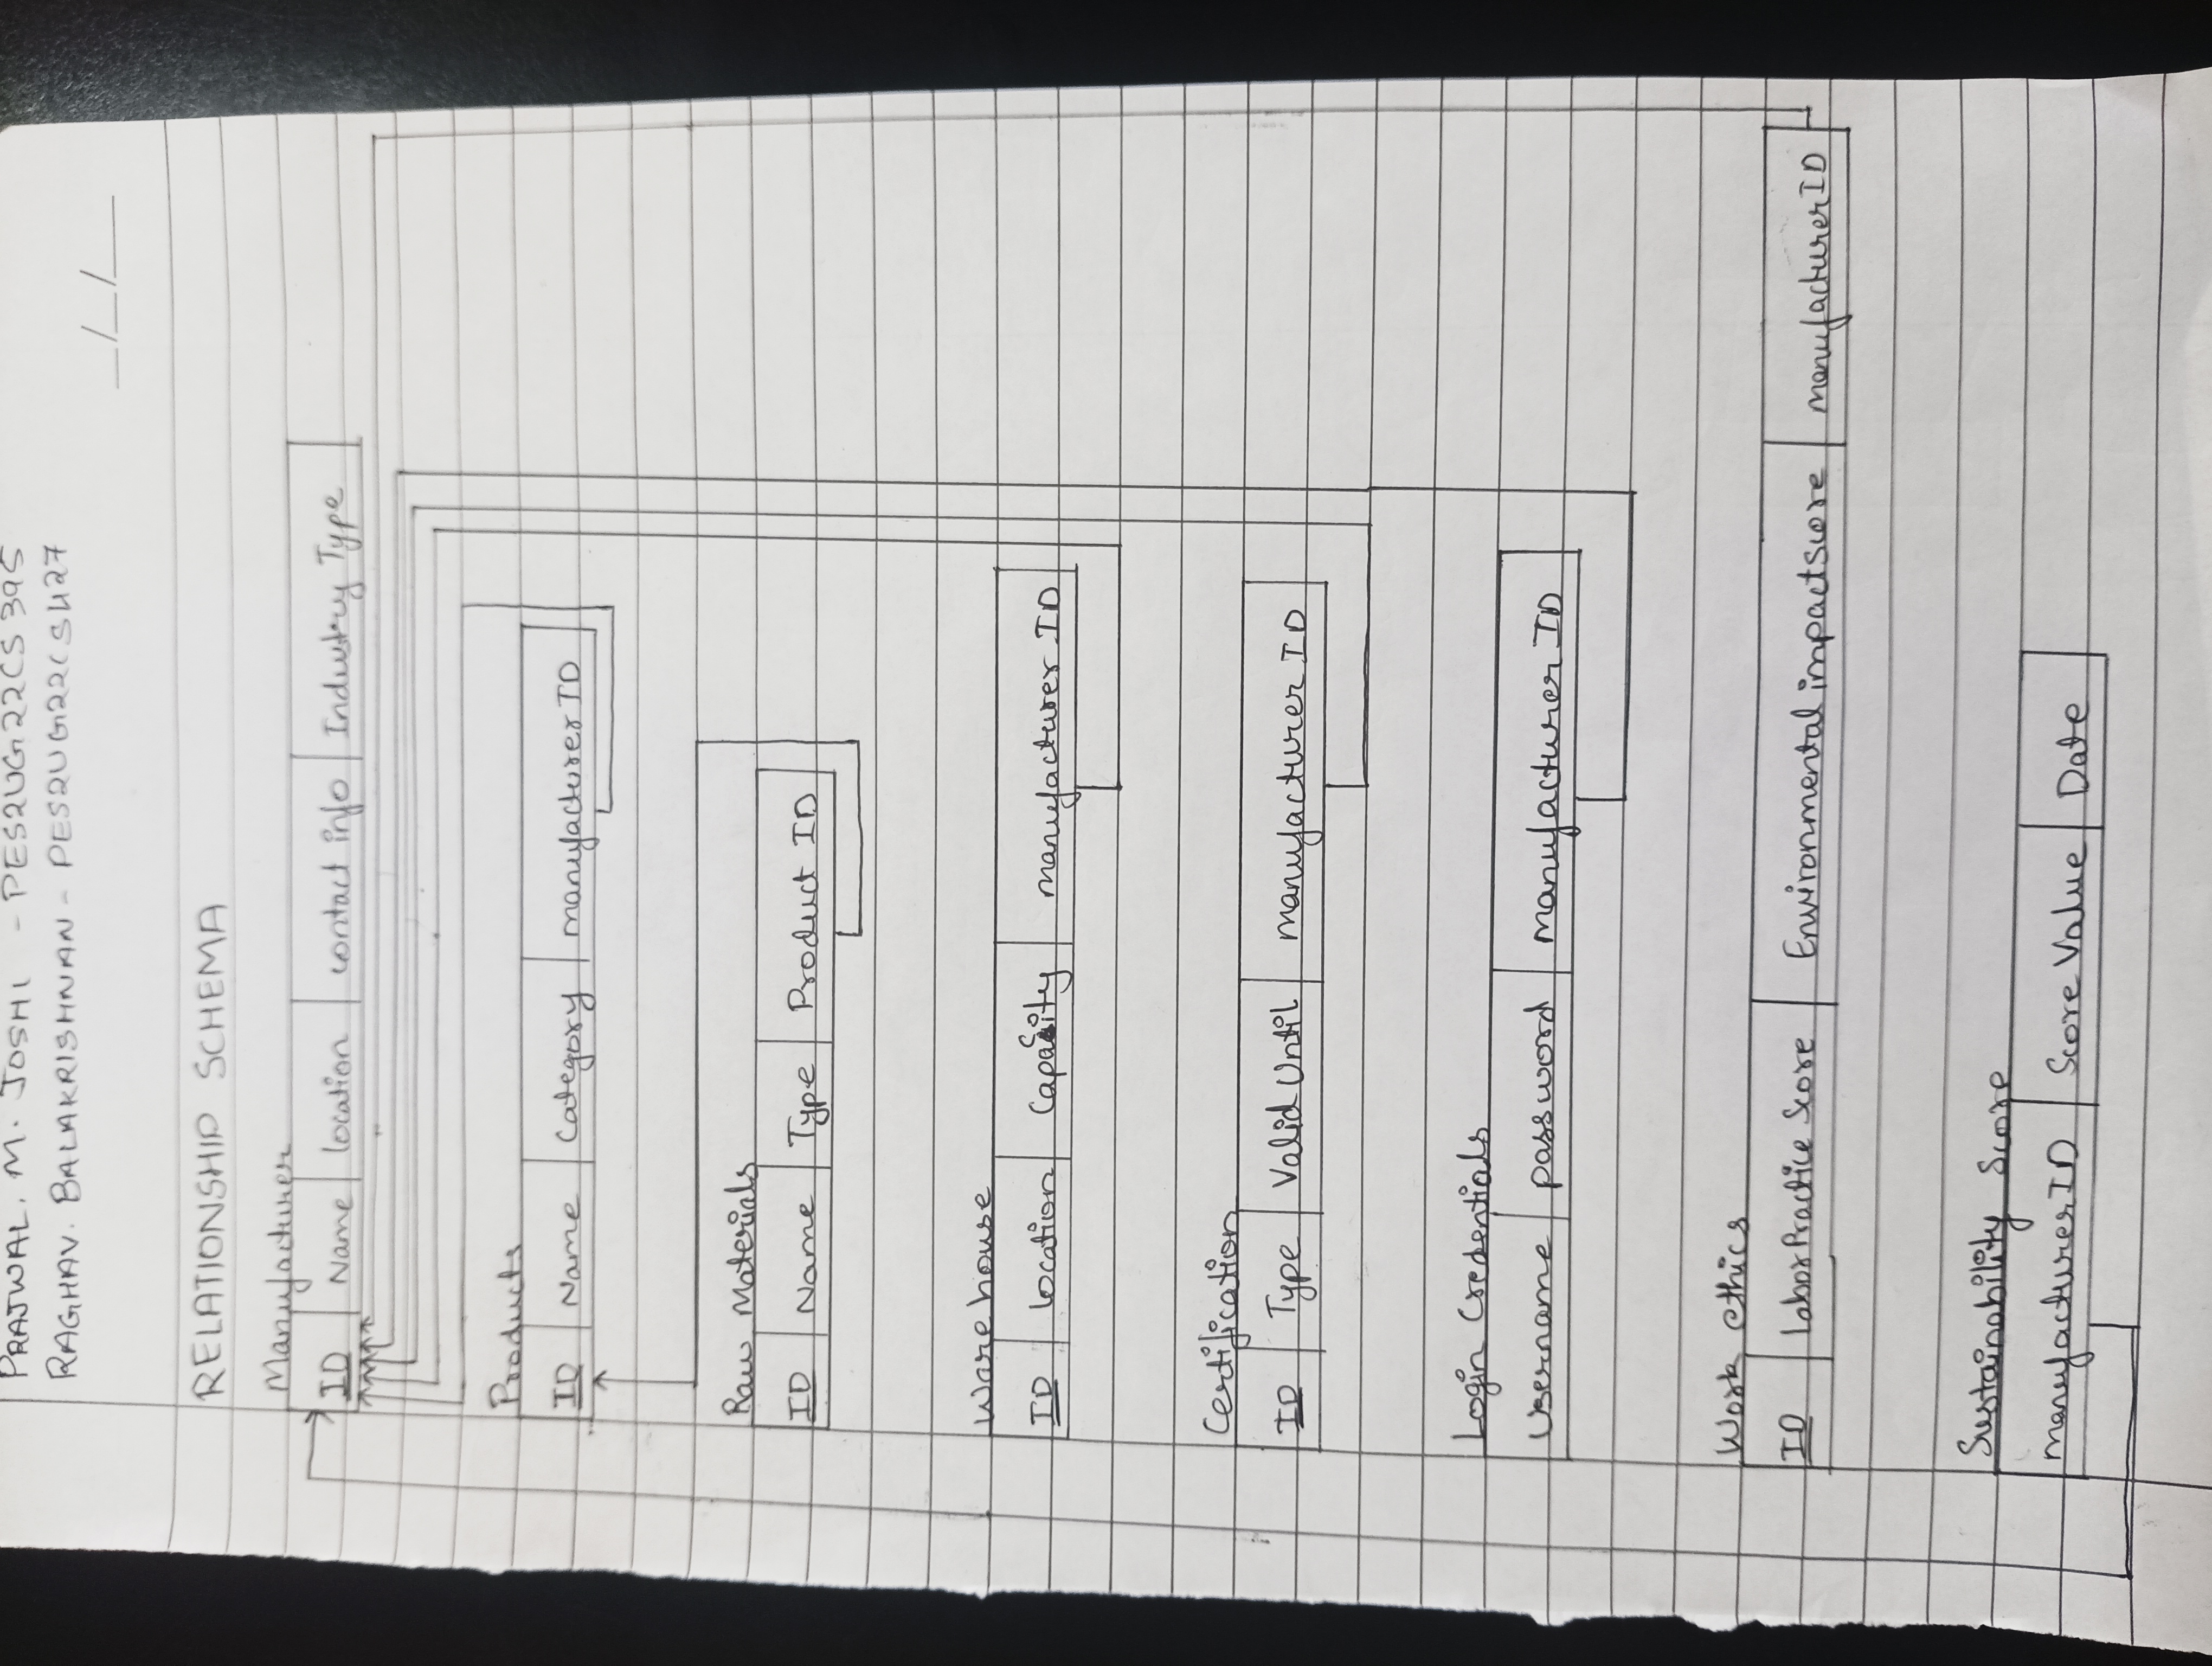 PRAJWAL. M. JOSHI - PES2UG22CS395
RAGHAV. BALAKRISHNAN - PES2UG22CS427
__/__/__
RELATIONSHIP SCHEMA
Manufacturer
ID Name location contact info Industry Type
Products
ID Name Category manufacturerID
Raw Materials
ID Name Type Product ID
Warehouse
ID location Capacity manufacturer ID
Certification
ID Type Valid Until manufacturer ID
Login Credentials
username password manufacturer ID
Work ethics
ID laborPractice Score Environmental impactscore manufacturerID
Sustainability Score
manufacturerID Score Value Date